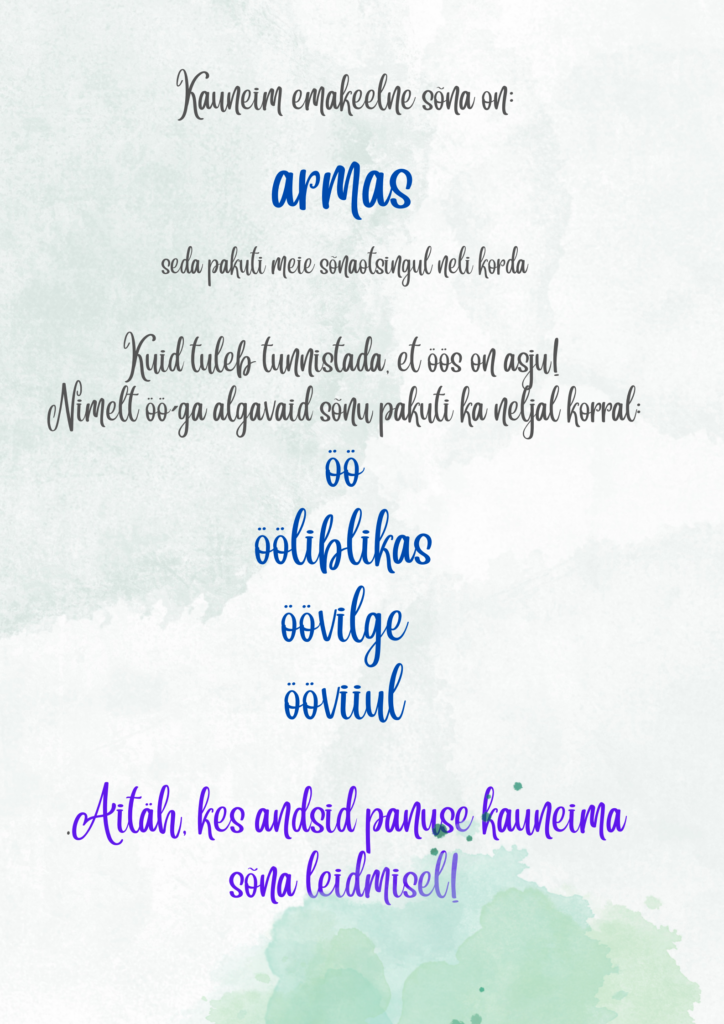 Kauneim emakeelne sõna on:
armas
seda pakuti meie sõnaotsingul neli korda
Kuid tuleb tunnistada, et öös on asju!
Nimelt öö-ga algavaid sõnu pakuti ka neljal korral:
öö
ööliblikas
öövilge
ööviiul
.Aitäh, kes andsid panuse kauneima
sõna leidmisel!